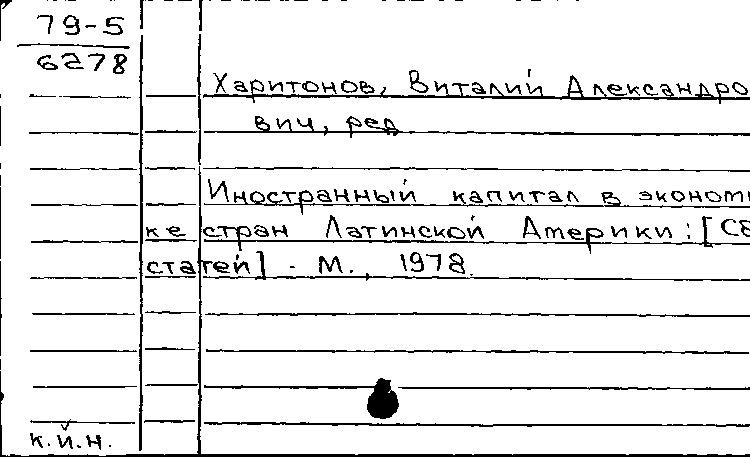 79-5
6278
Харитонов, Виталий Александро
вич, ред.
Иностранный капитал в экономи
ке стран Латинской Америки: [Сб
статей]. - М., 1978.
к.й.н.